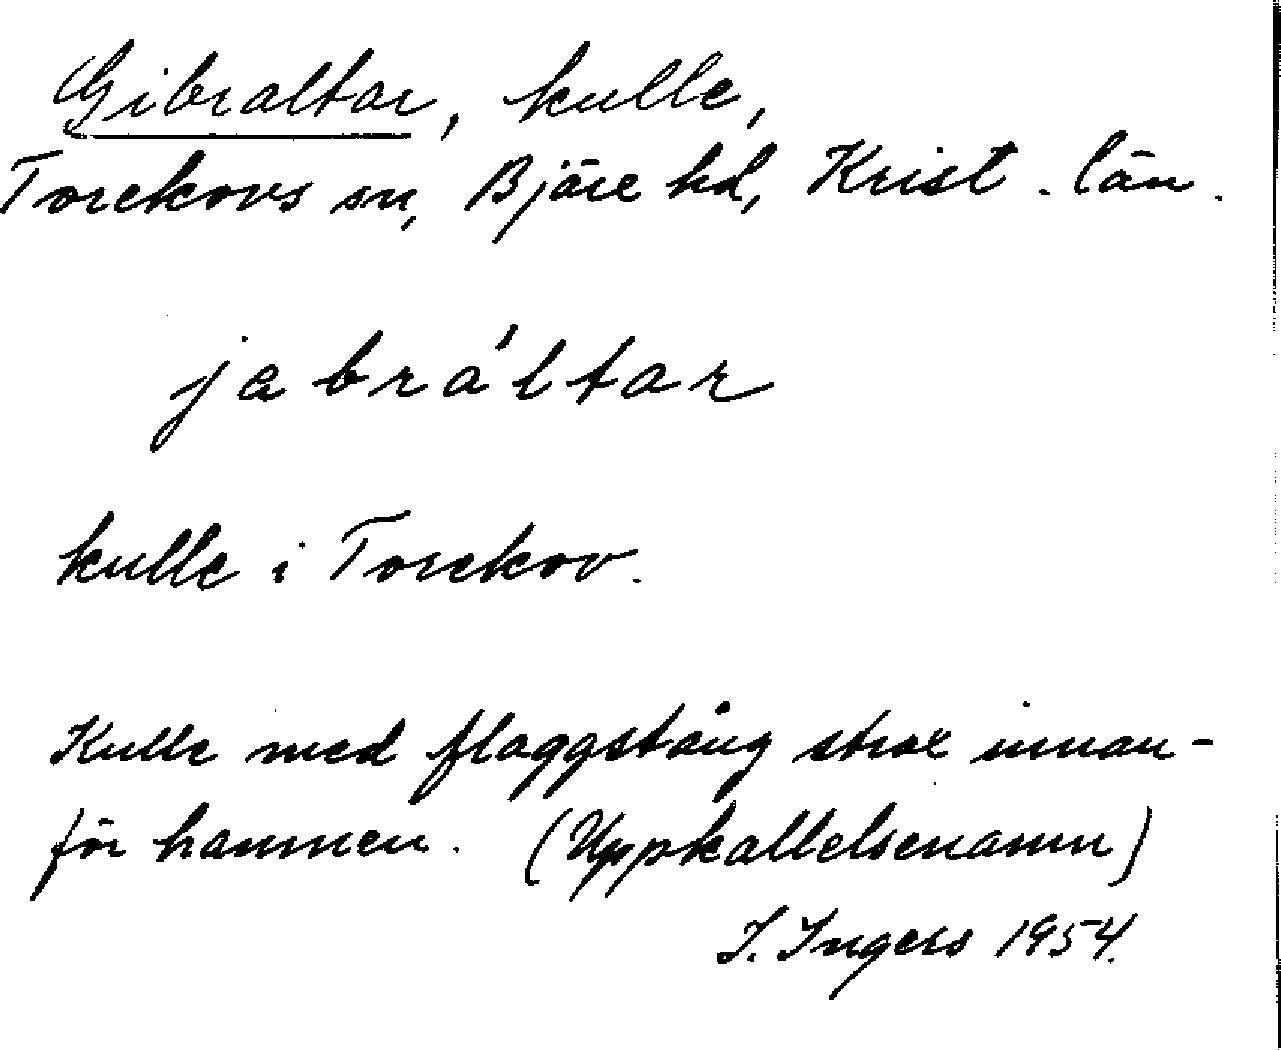 Gibraltar, kulle,
Torekovs sn, Bjäre hd, Krist. län.
jabrál'tar
kulle i Torekov.
Kulle med flaggstång strax innan-
för hamnen. (Uppkallelsenamn)
I. Ingers 1954.